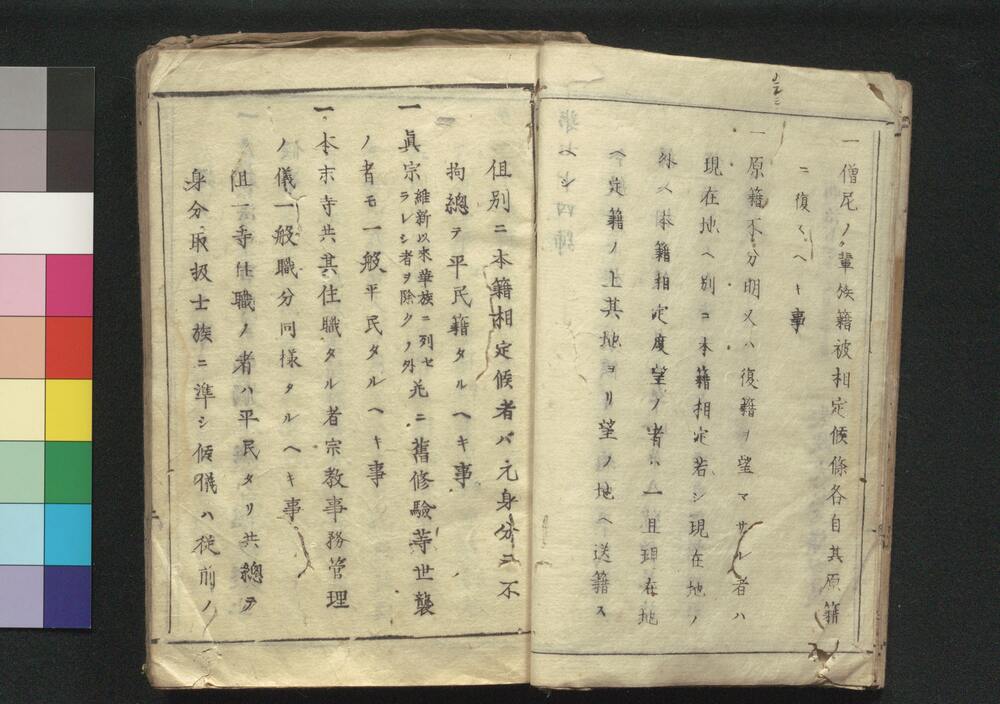 一僧尼ノ輩族籍被相定候條各自其原籍ノ
ニ復スヘキ事
一原籍不分明又ハ復籍ヲ望マサル者ハ
現在地ヘ別ニ本籍相定若シ現在地ノ
外ヘ本籍相定度望ノ者ハ一旦現在地
ヘ定籍ノ上其地ヨリ望ノ地ヘ送籍ス
但別ニ本籍相定候者ハ元身分ニ不
拘總テ平民籍タルヘキ事
一眞宗維新以來華族ニ列セラレシ者ヲ除クノ外并ニ舊修驗等世襲
ノ者モ一般平民タルヘキ事
一本末寺共其住職タル者宗教事務管理
ノ儀一般職分同樣タルヘキ事
但一寺住職ノ者ハ平民タリ共總テ
身分取扱士族ニ準シ候儀ハ從前ノ